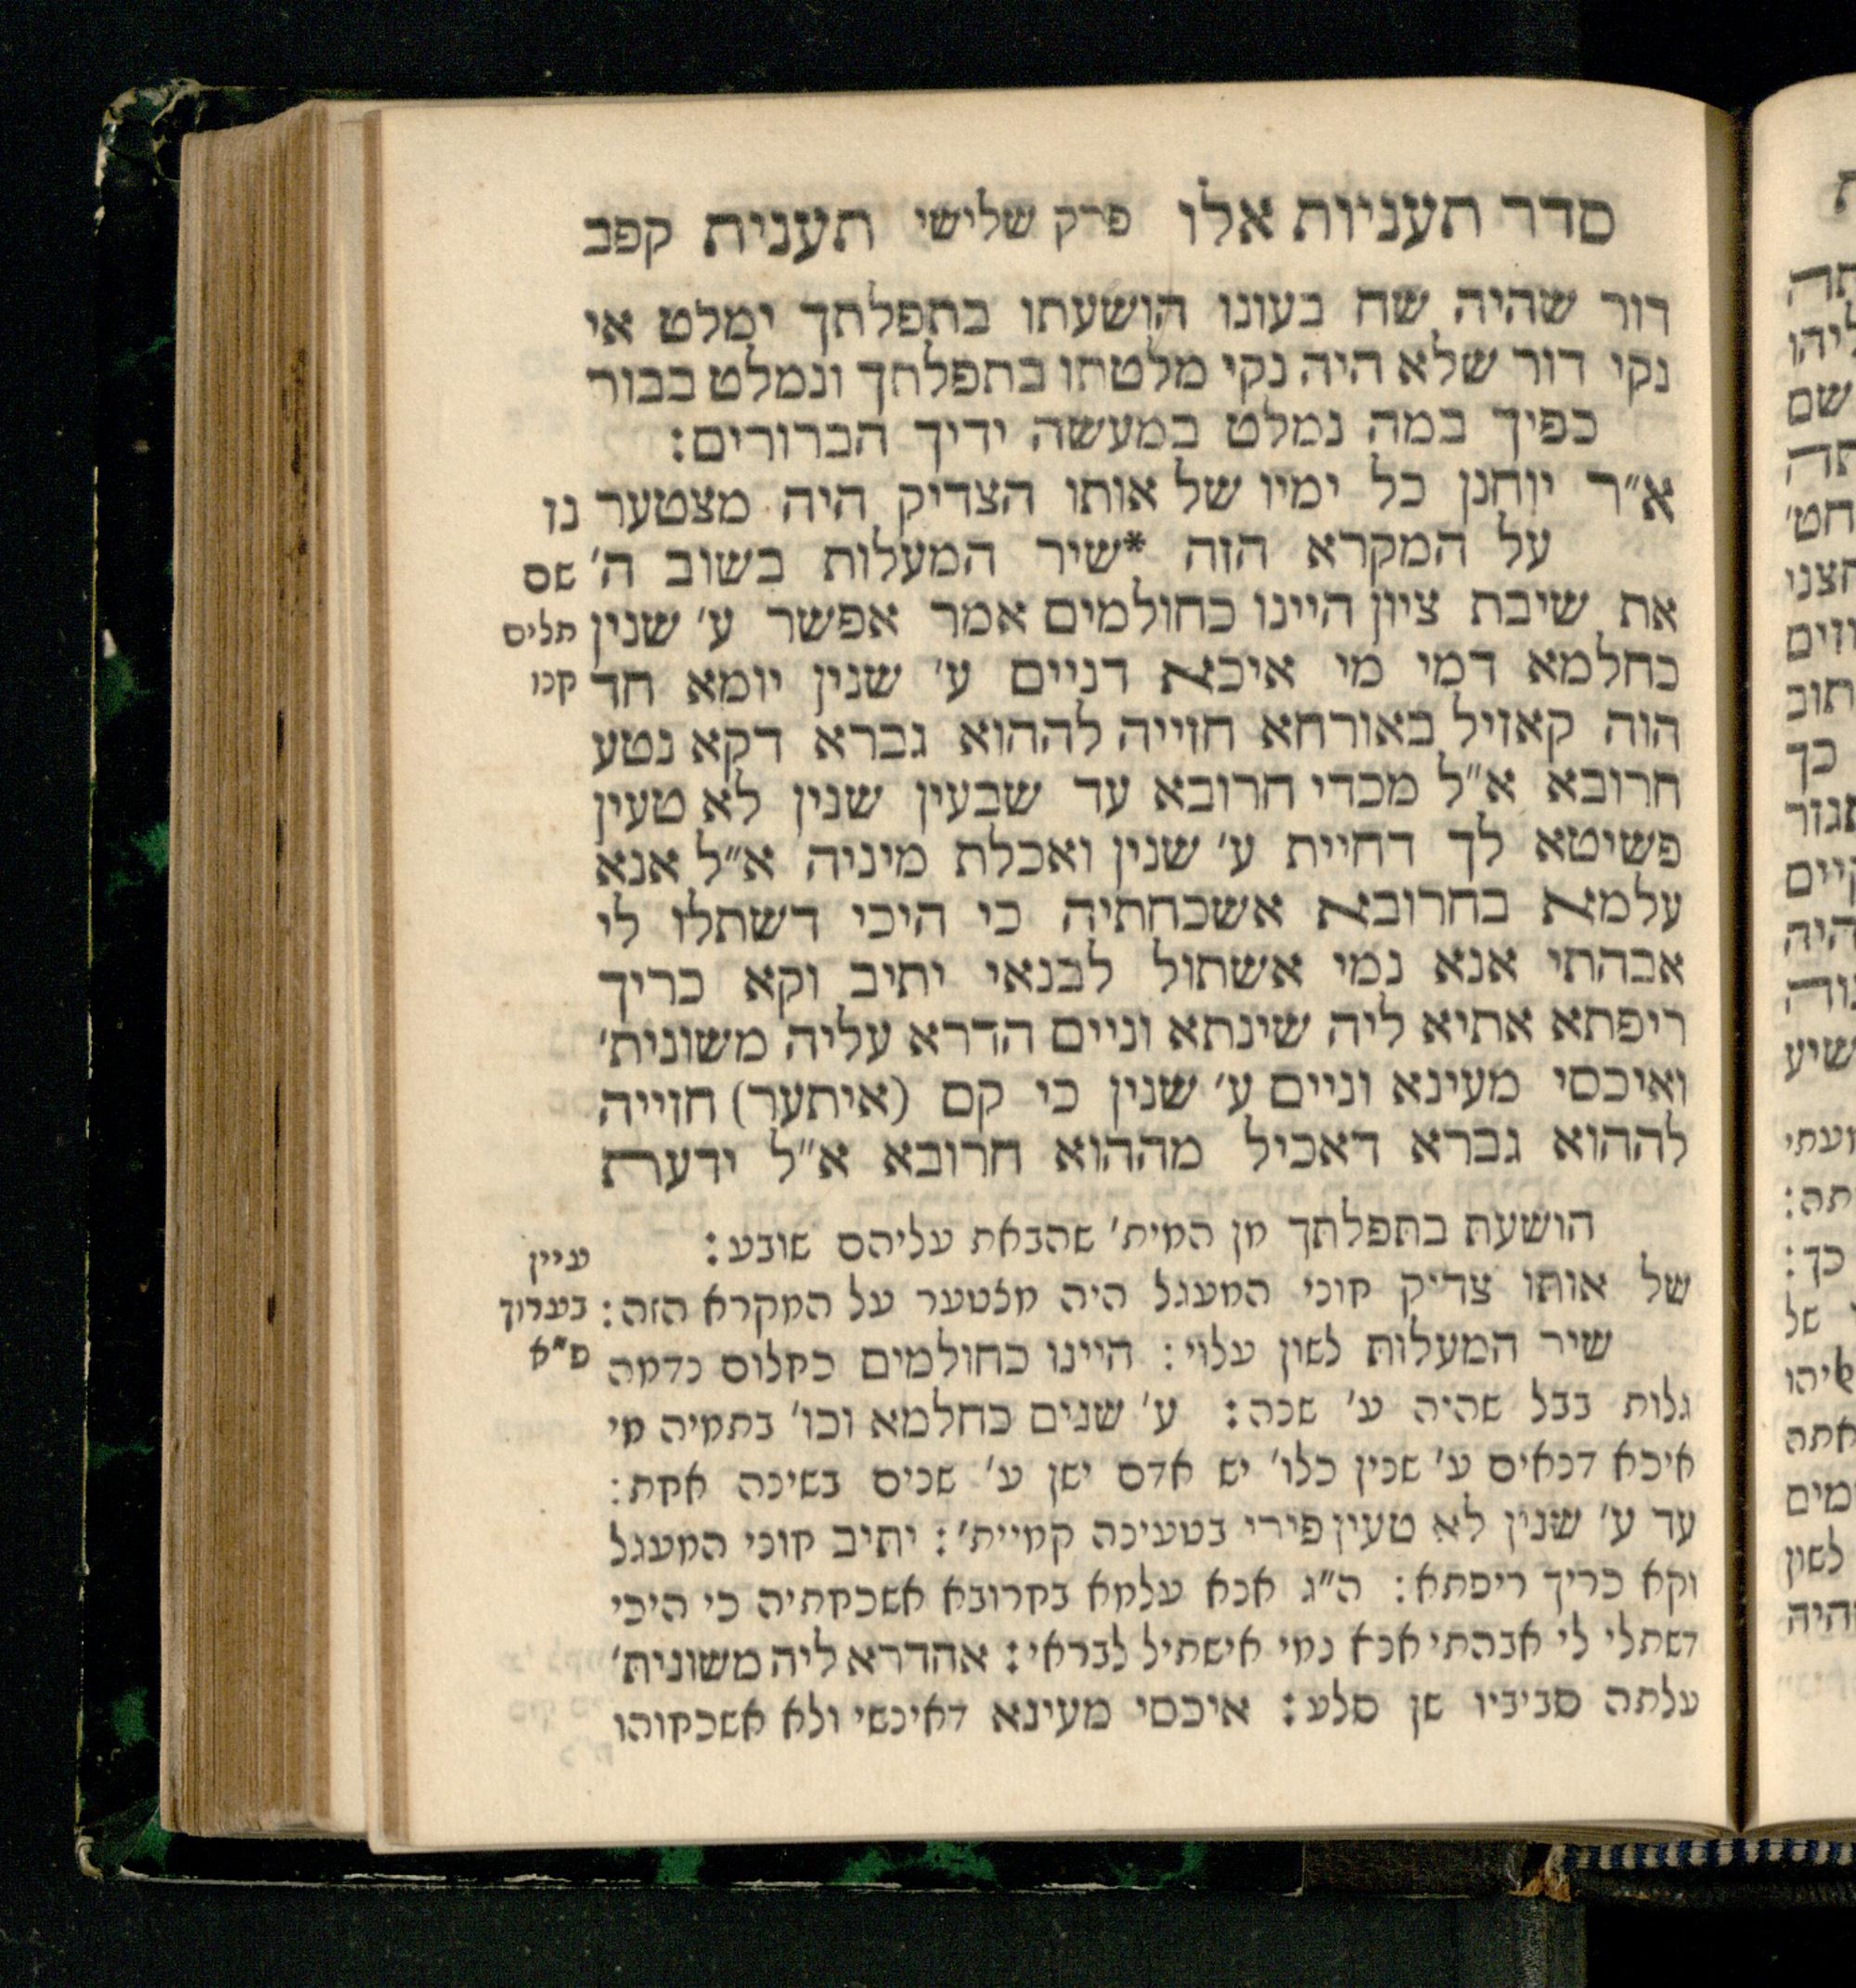 סדר תעניות אלו פרק שלישי תענית קפב
דור שהיה שח בעונו הושעתו בתפלתך ימלט אי
נקי דור שלא היה נקי מלטתו בתפלתך ונמלט בבור
כפיך במה נמלט במעשה ידיך הברורים:
א״ר יוחנן כל ימיו של אותו הצדיק היה מצטער נז
על המקרא הזה *שיר המעלות בשוב ה׳ שם
את שיבת ציון היינו כחולמים אמר אפשר ע׳ שנין תלים
כחלמא דמי מי איכא דניים ע׳ שנין יומא חד קכו
הוה קאזיל באורחא חזייה לההוא גברא דקא נטע
חרובא א״ל מכדי חרובא עד שבעין שנין לא טעין
פשיטא לך דחיית ע׳ שנין ואכלת מיניה א״ל אנא
עלמא בחרובא אשכחתיה כי היכי דשתלו לי
אבהתי אנא נמי אשתול לבנאי יתיב וקא כריך
ריפתא אתיא ליה שינתא וניים הדרא עליה משונית׳
ואיכסי מעינא וניים ע׳ שנין כי קם (איתער) חזייה
לההוא גברא דאכיל מההוא חרובא א״ל ידעת
הושעת בתפלתך מן המית׳ שהבאת עליהם שובע: עיין
של אותו צדיק חוני המעגל היה מצטער על המקרא הזה: בערוך
שיר המעלות לשון עלוי: היינו כחולמים כחלום נדמה ס״א
גלות בבל שהיה ע׳ שנה: ע׳ שנים כחלמא וכו׳ בתמיה מי
איכא דנאים ע׳ שנין כלו׳ יש אדם ישן ע׳ שנים בשינה אחת:
עד ע׳ שנין לא טעין פירי בטעינה קמיית׳: יתיב חוני המעגל
וקא כריך ריפתא: ה״ג אנא עלמא בחרובא אשכחתיה כי היכי
דשתלי לי אבהתי אנא נמי אישתיל לבראי: אהדרא ליה משונית׳
עלתה סביביו שן סלע: איכסי מעינא דאינשי ולא אשכחוהו